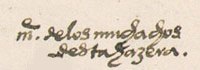 m. delos muchachos
desta hazera.